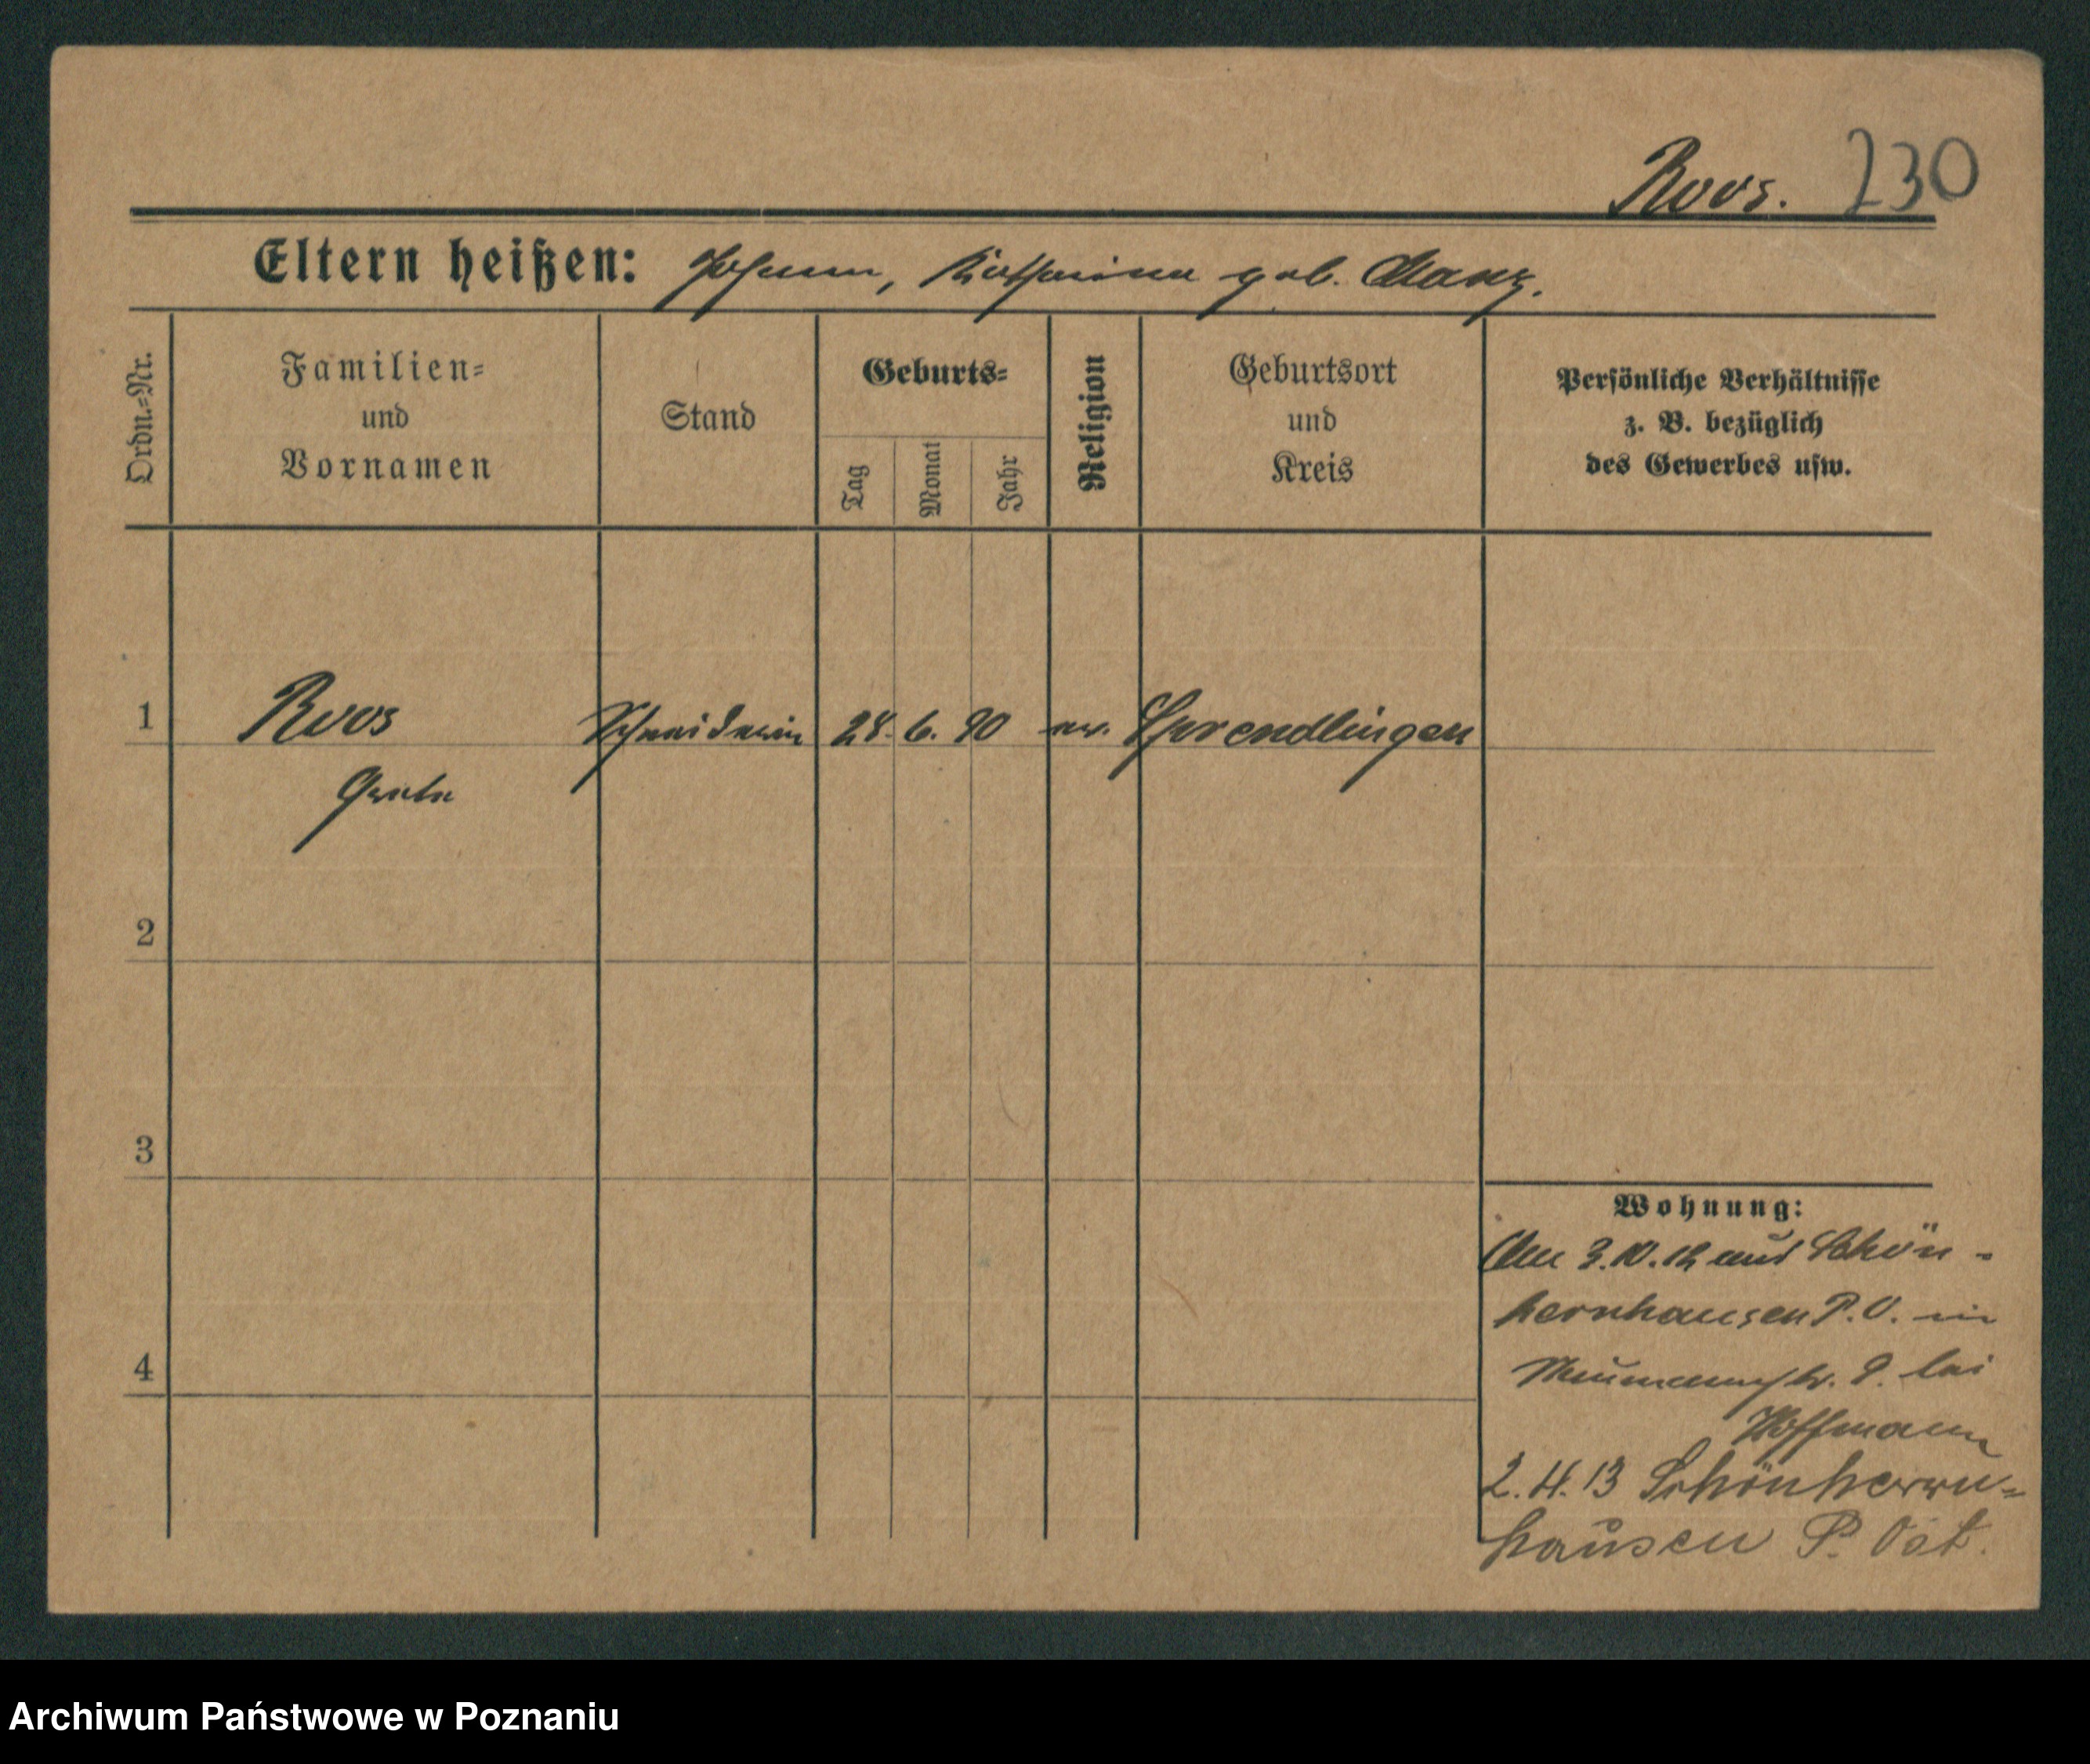 Roos. 230
Eltern heißen: Johann, Katharina geb. Manz.
Ordn.=Nr.
Familien=
und
Vornamen
Stand
Geburts=
Tag
Monat
Jahr
Religion
Geburtsort
und
Kreis
Persönliche Verhältnisse
z. B. bezüglich
des Gewerbes usw.
1 Roos Schneiderin 28. 6. 90 ev. Sprendlingen
Grete
2
3
4
Wohnung:
3.10.12 aus Schön-
herrnhausen P.O. in
Neumannstr. 9. bei
Hoffmann
2.4.13 Schönherrn=
hausen P. Ost.
Archiwum Państwowe w Poznaniu